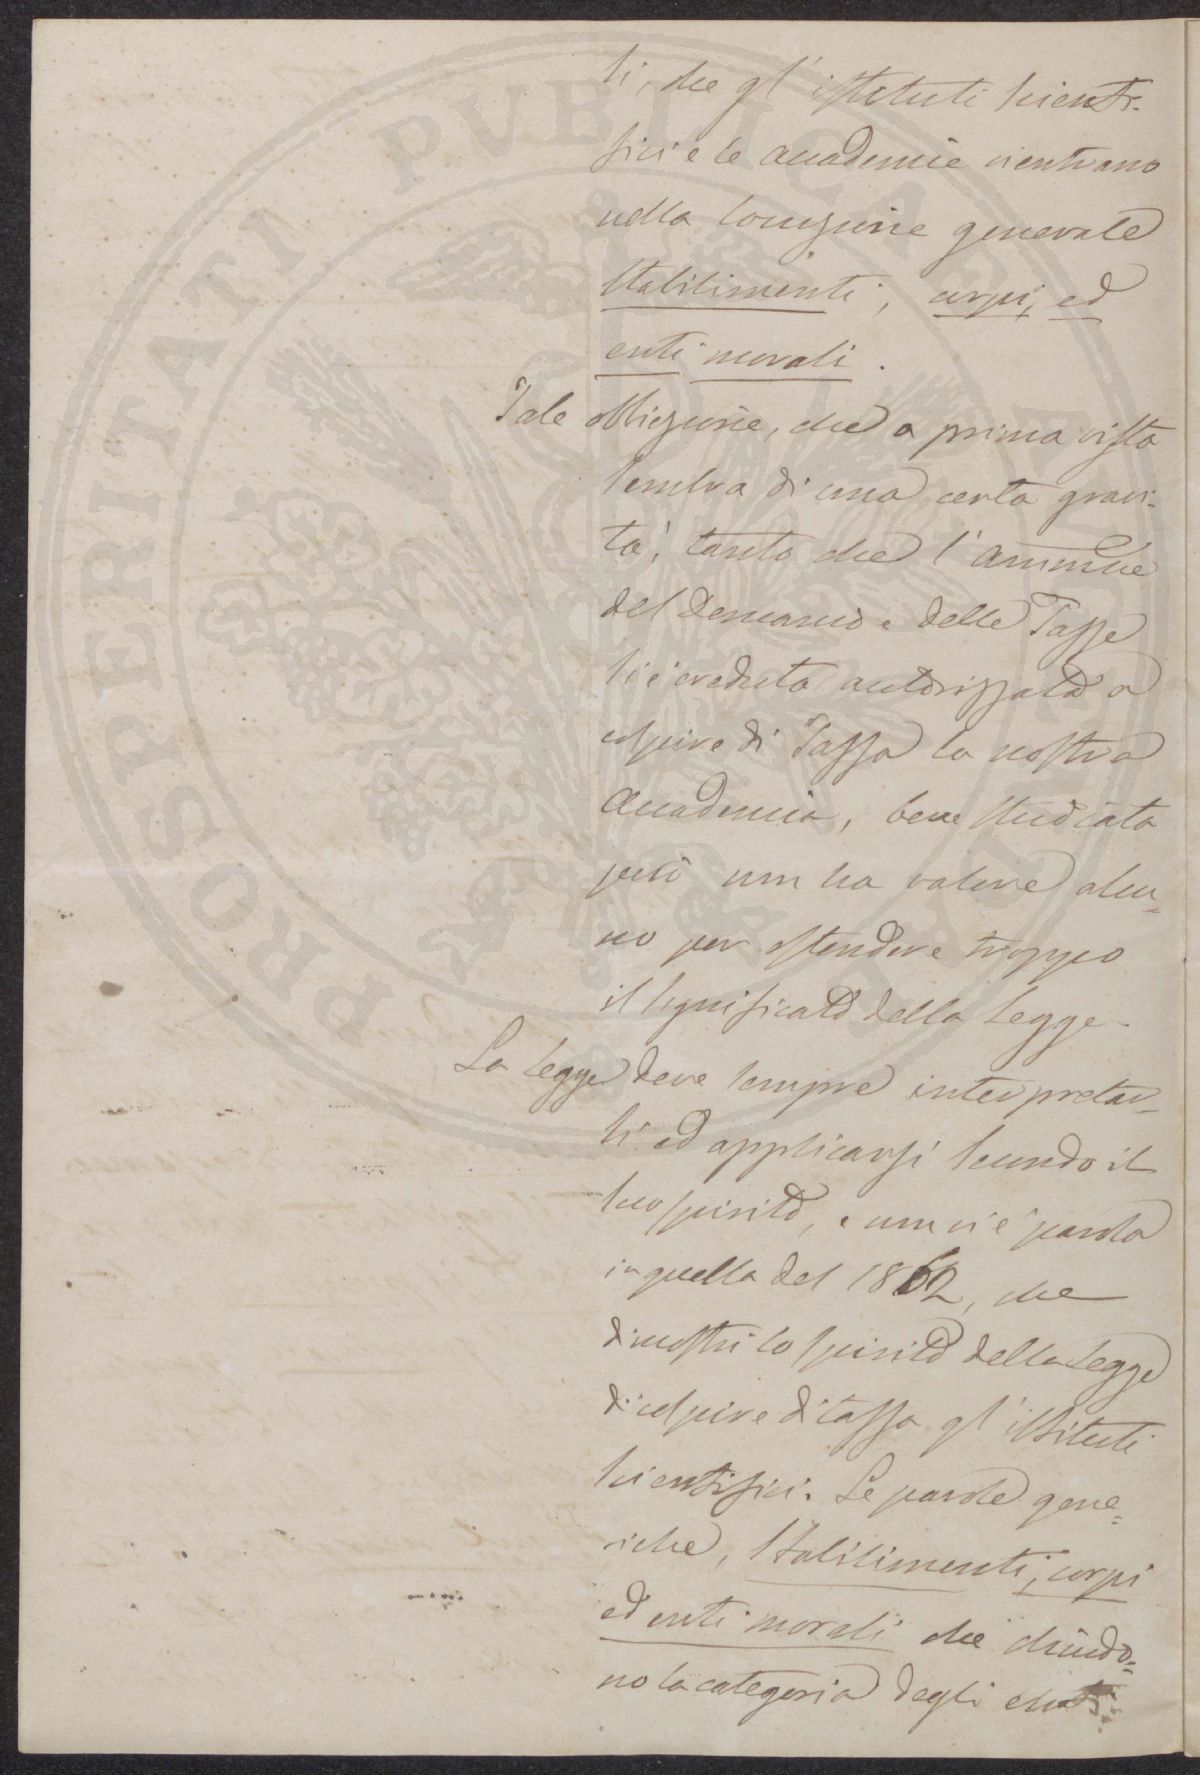 si, che gl' istituti scienti-
fici e le accademie rientrano
nella locuzione generale
stabilimenti, corpi, ed
enti morali.
Tale obbiezione, che a prima vista
sembra di una certa gravi-
tà, tanto che l'Ammne
del Demanio e delle Tasse
si è creduta autorizzata a
colpire di Tassa la nostra
Accademia, bene studiata
però non ha valore alcu-
no per estendere troppo
il significato della Legge.
La Legge deve sempre interpretar-
si ed applicarsi secondo il
suo spirito, e non vi è parola
in quella del 1862, che
dimostri lo spirito della Legge
di colpire di tassa gl' istituti
scientifici. Le parole gene-
riche, stabilimenti, corpi
ed enti morali che chiudo-
no la categoria degli
PROSPERITATI PUBLICAE